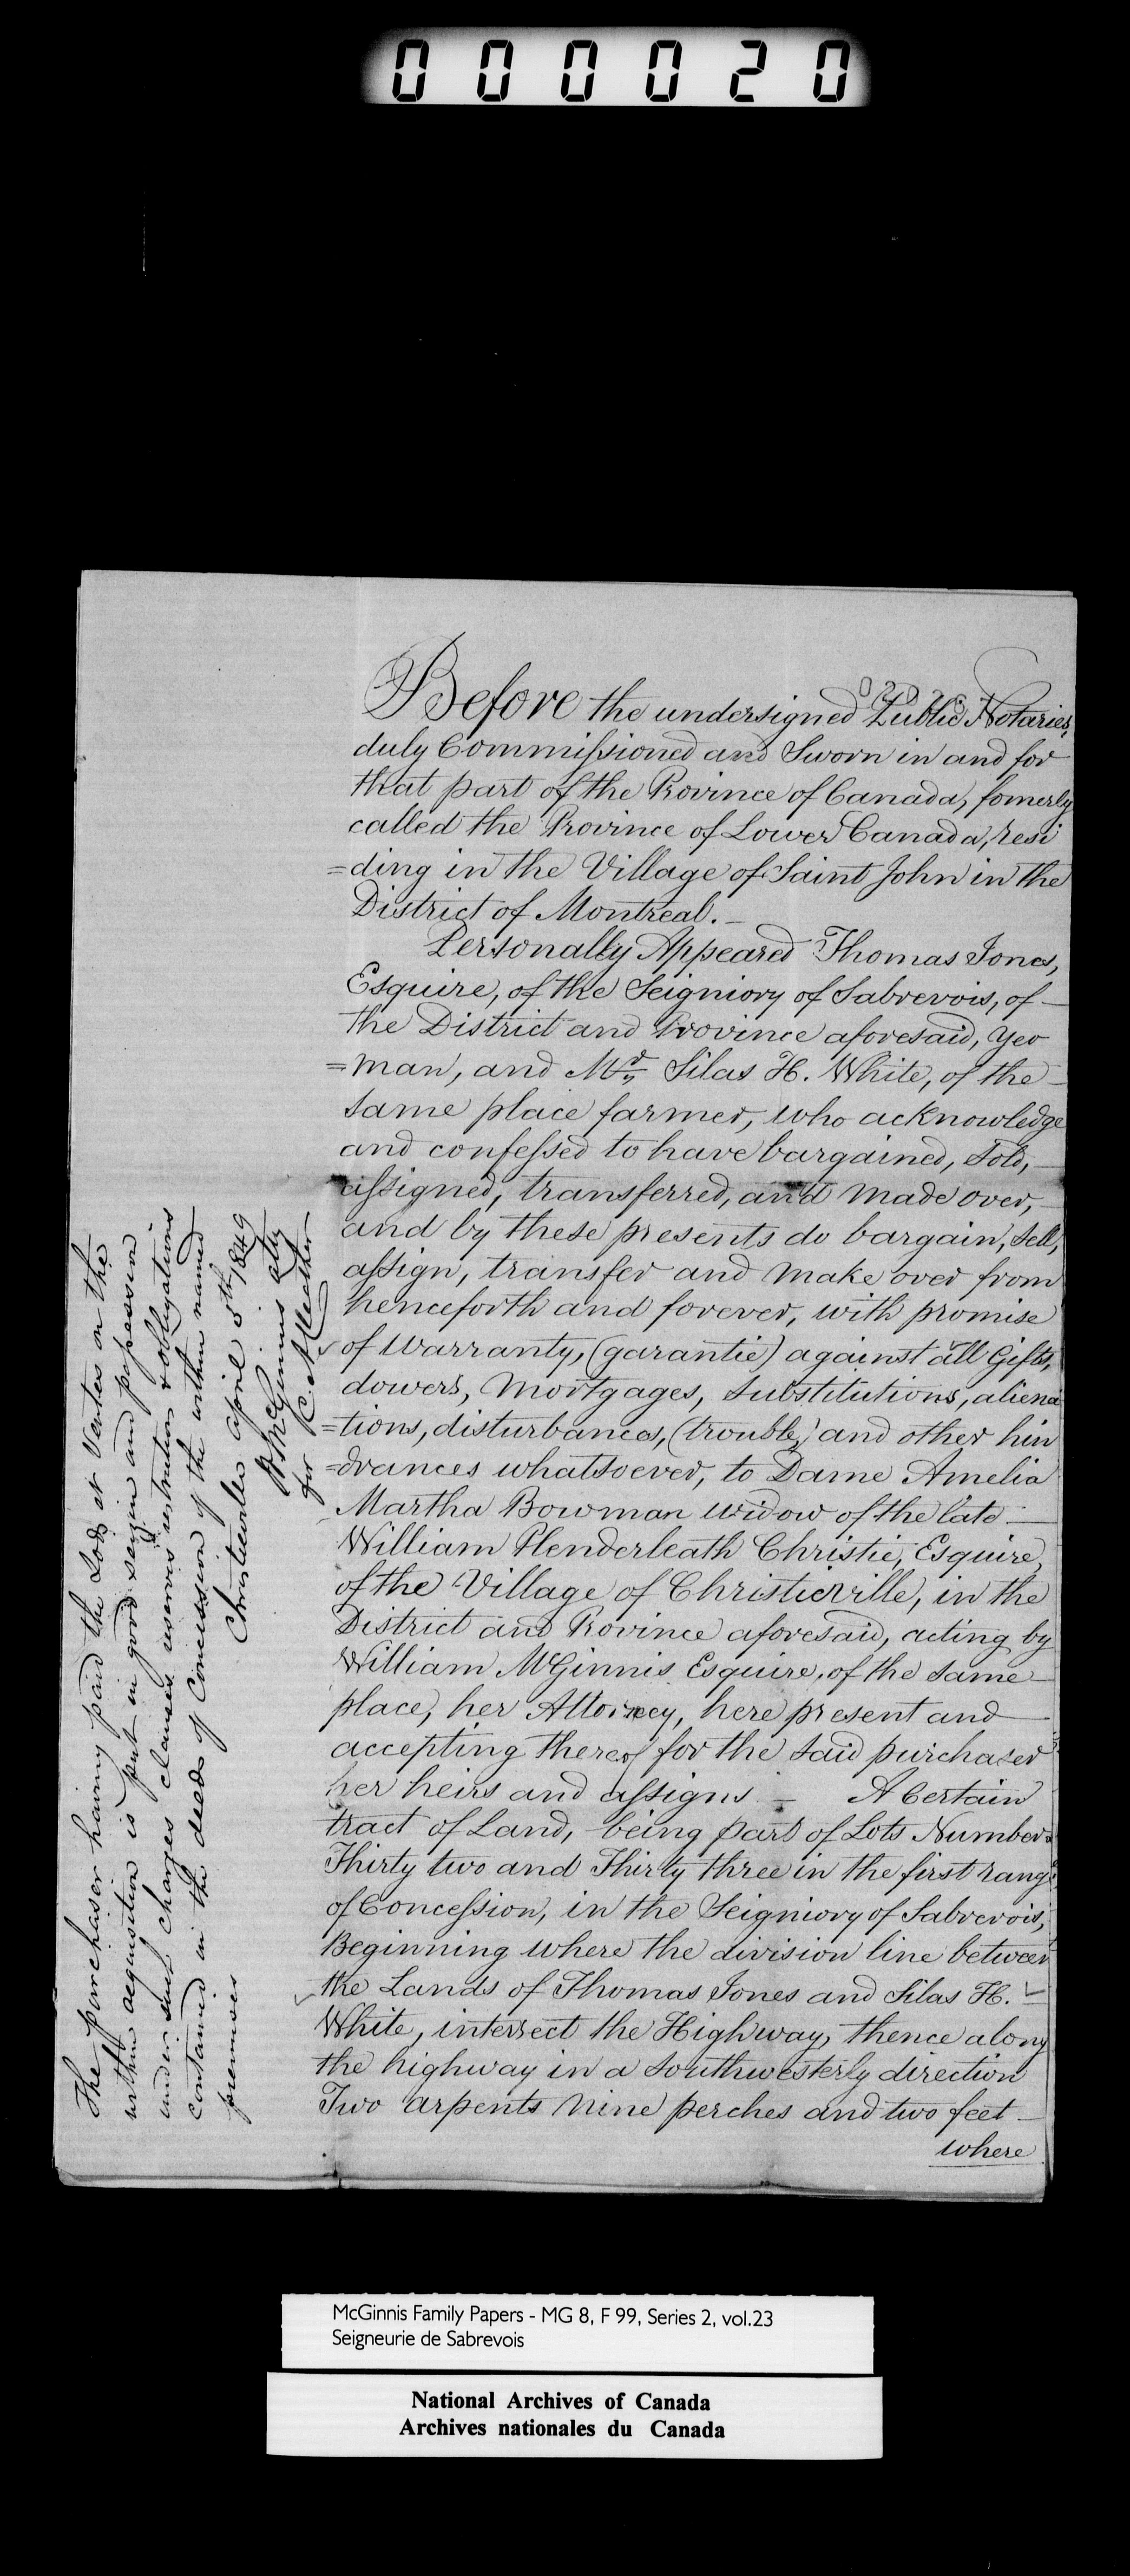 000020
Before the undersigned Public Notaries,
duly Commissioned and Sworn in and for
that part of the Province of Canada, fomerly
called the Province of Lower Canada, resi
=ding in the Village of Saint John in the
District of Montreal.
Personally Appeared Thomas Jones,
Esquire, of the Seigniory of Sabrevois, of
the District and Province aforesaid, Yeo
=man, and Mr. Silas H. White, of the
same place farmer, who acknowledge
and confessed to have bargained, sold,
assigned, transferred, and made over,
and by these presents do bargain, sell,
assign, transfer and make over from
henceforth and forever, with promise
of Warranty, (garantie) against all Gifts,
dowers, Mortgages, substitutions, aliena
=tions, disturbances, (trouble) and other hin
=drances whatsoever, to Dame Amelia
Martha Bowman widow of the late
William Plenderleath Christie, Esquire,
of the Village of Christieville, in the
District and Province aforesaid, acting by
William McGinnis Esquire, of the same
place, her Attorney, here present and
accepting thereof for the said purchaser
her heirs and assigns — A Certain
tract of Land, being part of Lots Numbers
Thirty two and Thirty three in the first range
of Concession, in the Seigniory of Sabrevois,
Beginning where the division line between
the Lands of Thomas Jones and Silas H.
White, intersect the Highway, thence along
the highway in a southwesterly direction
Two arpents Nine perches and two feet
where
The purchaser having paid the Lods et Ventes on the
within acquisition is put in good seizin and possession
under such charges clauses reserves restriction & obligations
contained in the deeds of Concession of the within named
premises Christieville April 5th 1849
W McGinnis atty
for
McGinnis Family Papers - MG 8, F 99, Series 2, vol.23
Seigneurie de Sabrevois
National Archives of Canada
Archives nationales du Canada